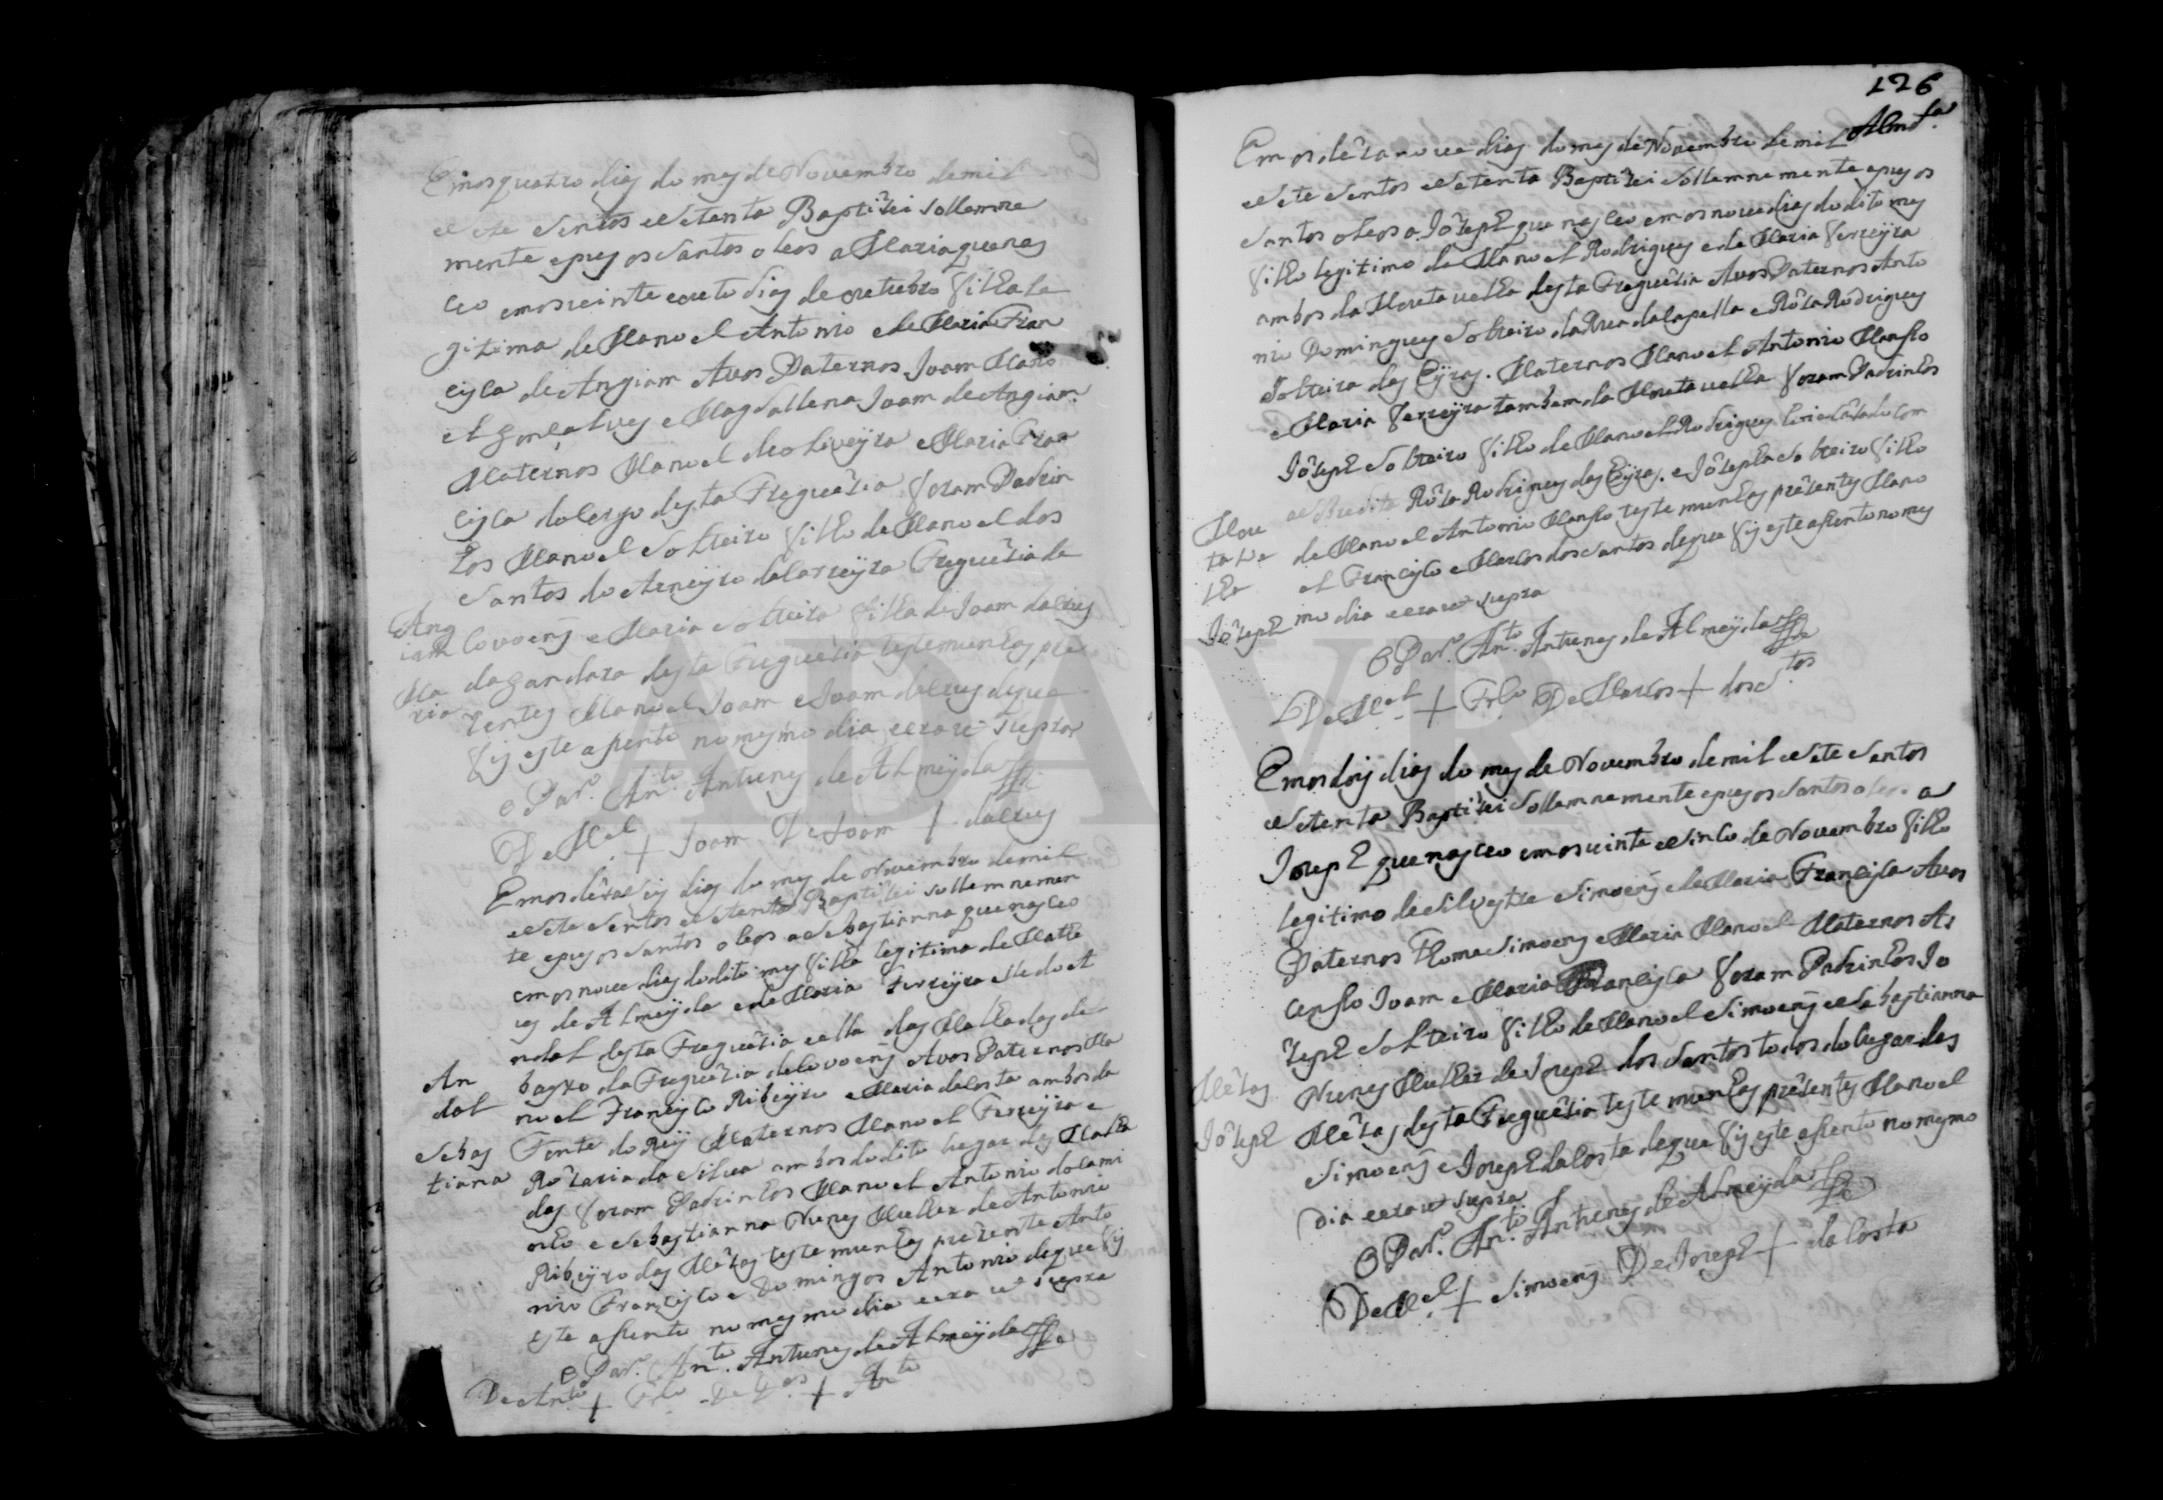 Em os quatro dias do mes de Novembro de mil
e sete Sentos e Setenta Baptizei Sollemne
mente e pus os Santos oleos a Maria que nas
ceo em os veinte e outo dias de outubro filha le
gitima de Manoel Antonio e de Maria Fran
cisca de Angiam Avos Paternos Joam Mano
el Gonsalves e Magdallena Joam de Angiam
Maternos Manoel de oliveyra e Maria Fran
cisca do Cergo desta Freguezia foram Padrin
hos Manoel Solteiro filho de Manoel dos
Santos do Areeyro da Carreyra Freguezia de
Covoens e Maria Solteira filha de Joam da Crus
da gandara desta Freguezia testemunhas pre
zentes Manoel Joam e Joam da Crus de que
fis este asento no mesmo dia e era ut supra
Ang
iam
Ma
ria
o Par.º An.to Antunes de Almeyda
De M.el + Joam De Joam + da Crus
Em os dezaseis dias do mes de Novembro de mil
e Sete Sentos e Setenta Baptizei sollemnemen
te e pus os Santos oleos a Sebastianna que nasceo
em os nove dias do dito mes filha legitima de Mathe
us de Almeyda e de Maria Ferreyra elle do A
ndal desta Freguezia e ella das Malhadas de
bayxo da Freguezia de Covoens Avos Paternos Ma
noel Francisco Ribeyro e Maria da Costa ambos da
Fonte do Reÿ Maternos Manoel Ferreyra e
Rozaria da Silva ambos do dito lugar das Malha
das foram Padrinhos Manoel Antonio do Cami
nho e Sebastianna Nunes Mulher de Antonio
Ribeyro das Mezas testemunhas prezente Anto
nio Francisco e Domingos Antonio de que fis
este asento no mesmo dia e era ut supra
An
dal
Sebas
tiana
o Par.º An.to Antunes de Almeyda
De Ant.o + Fr.co De D.os + An.to
126
Almd.a
Em os dezanove dias do mes de Novembro de mil
e Sete Sentos e Setenta Baptizei Sollemnemente e pus os
Santos oleos a Jozeph que nasceo em os nove dias do dito mes
filho legitimo de Manoel Rodrigues e de Maria Ferreyra
ambos da Mouta velha desta Freguezia Avos Paternos Anto
nio Domingues Solteiro da Area da Capella e Roza Rodrigues
Solteira das Eÿras. Maternos Manoel Antonio Manso
e Maria Ferreyra tambem da Mouta velha foram Padrinhos
Jozeph Solteiro filho de Manoel Rodrigues
Roza Rodrigues das Eÿras. e Jozepha Solteira filha
de Manoel Antonio Manso testemunhas prezentes Mano
el Francisco e Marcos dos Santos de que fis este asento no mes
mo dia e era ut supra
Mou
ta ve
lha
Jozeph
O Par.º An.to Antunes de Almeyda
De M.el + Fr.co De Marcos + dos S.tos
Em os dois dias do mes de Novembro de mil e Sete Sentos
e Setenta Baptizei Sollemnemente e pus os Santos oleos a
Joseph que nasceo em os veinte e Sinco de Novembro filho
legitimo de Silvestre Simoens e de Maria Francisca Avos
Paternos Thome Simoens e Maria Manoel Maternos As
censo Joam e Maria Francisca foram Padrinhos Jo
zeph Solteiro filho de Manoel Simoens e Sebastianna
Nunes Mulher de Joseph dos Santos todos do lugar das
Mezas desta Freguezia testemunhas prezentes Manoel
Simoens e Joseph da Costa de que fis este asento no mesmo
dia e era ut supra
Mezas
Jozeph
O Par.º An.to Antunes de Almeyda
De M.el + Simoens De Joseph + da Costa
ADAVR